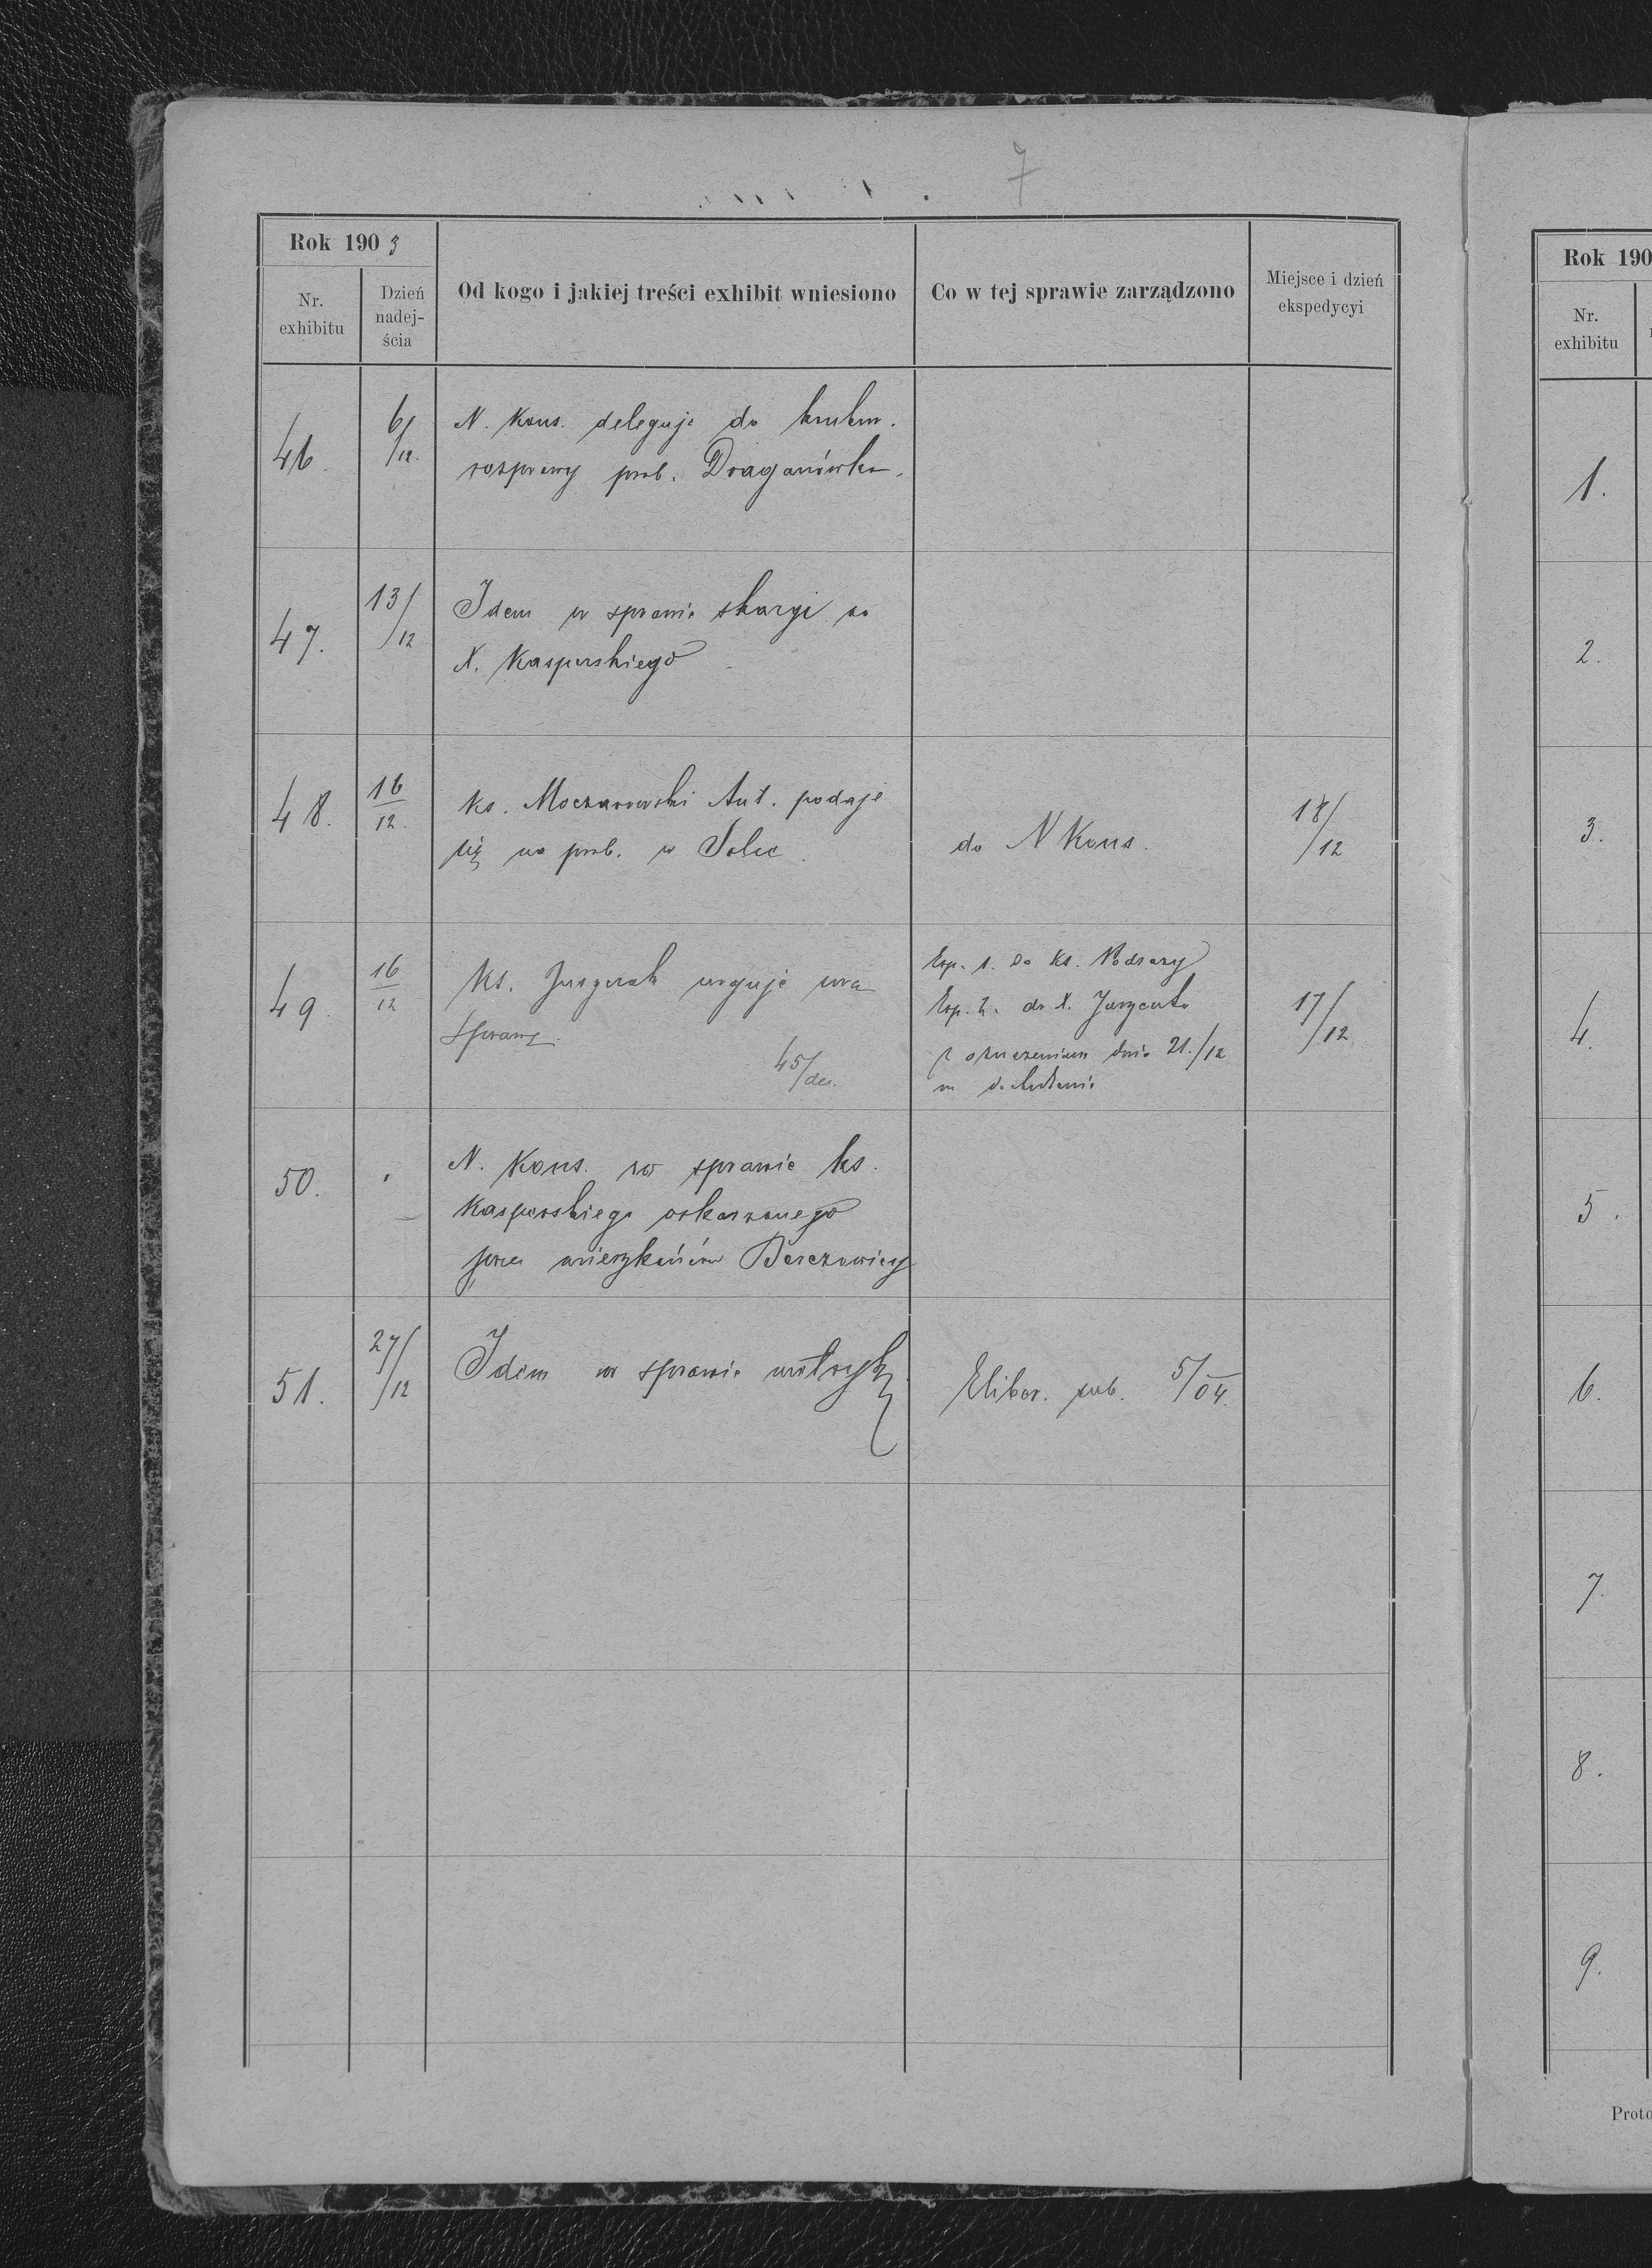 7
Rok 1903
Nr. exhibitu
Dzień nadejścia
Od kogo i jakiej treści exhibit wniesiono
Co w tej sprawie zarządzono
Miejsce i dzień ekspedycyi
46.
6/12.
N. Kons. deleguje do
rozprawy prob. Draganówka.
47.
13/12
Idem w sprawie skargi na
X. Kasperskiego
48.
16/12.
Ks. Moczarowski Ant. podaje
się na prob. w Solec.
do N Kons.
18/12
49.
16/12
Ks. urguje
sprawę.
45/
Exp. 1. do Ks. Podrazy
Exp. 2. do X.
z oznaczeniem dnia 21./12
17/12
50.
N. Kons. w sprawie ks.
Kasperskiego oskarzonego
przez mieszkańców Berezowicy
51.
27/12
Idem w sprawie
Elibor. sub. 5/04.
Rok 190
Nr.
exhibitu
1.
2.
3.
4.
5.
6.
7.
8.
9.
Proto